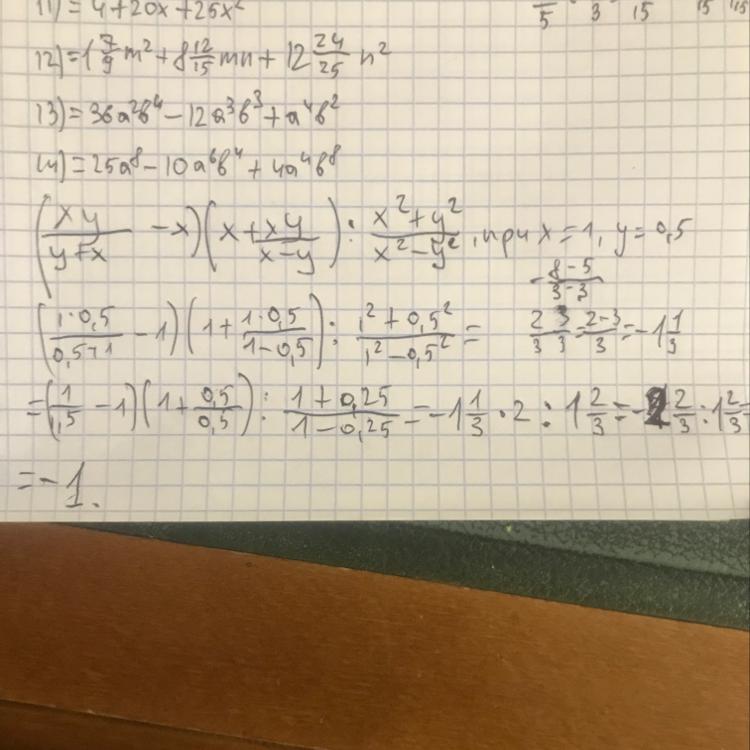 11) = 4 + 20x + 25x²
5 3 15 15
12) = 1 7/9 m² + 8 12/15 mn + 12 24/25 n²
13) = 36a²b⁴ - 12a³b³ + a⁴b²
14) = 25a⁸ - 10a⁶b⁴ + 4a⁴b⁸
(xy/(y+x) - x)(x + xy/(x-y)) : (x²+y²)/(x²-y²), при x = 1, y = 0,5
- (8-5)/(3-3)
(1·0,5/(0,5+1) - 1)(1 + 1·0,5/(1-0,5)) : (1²+0,5²)/(1²-0,5²) =
2/3 3/3 = (2-3)/3 = -1 1/3
= (1/1,5 - 1)(1 + 0,5/0,5) : (1+0,25)/(1-0,25) = -1 1/3 · 2 : 1 2/3 = - 2/3 : 1 2/3 =
= -1.